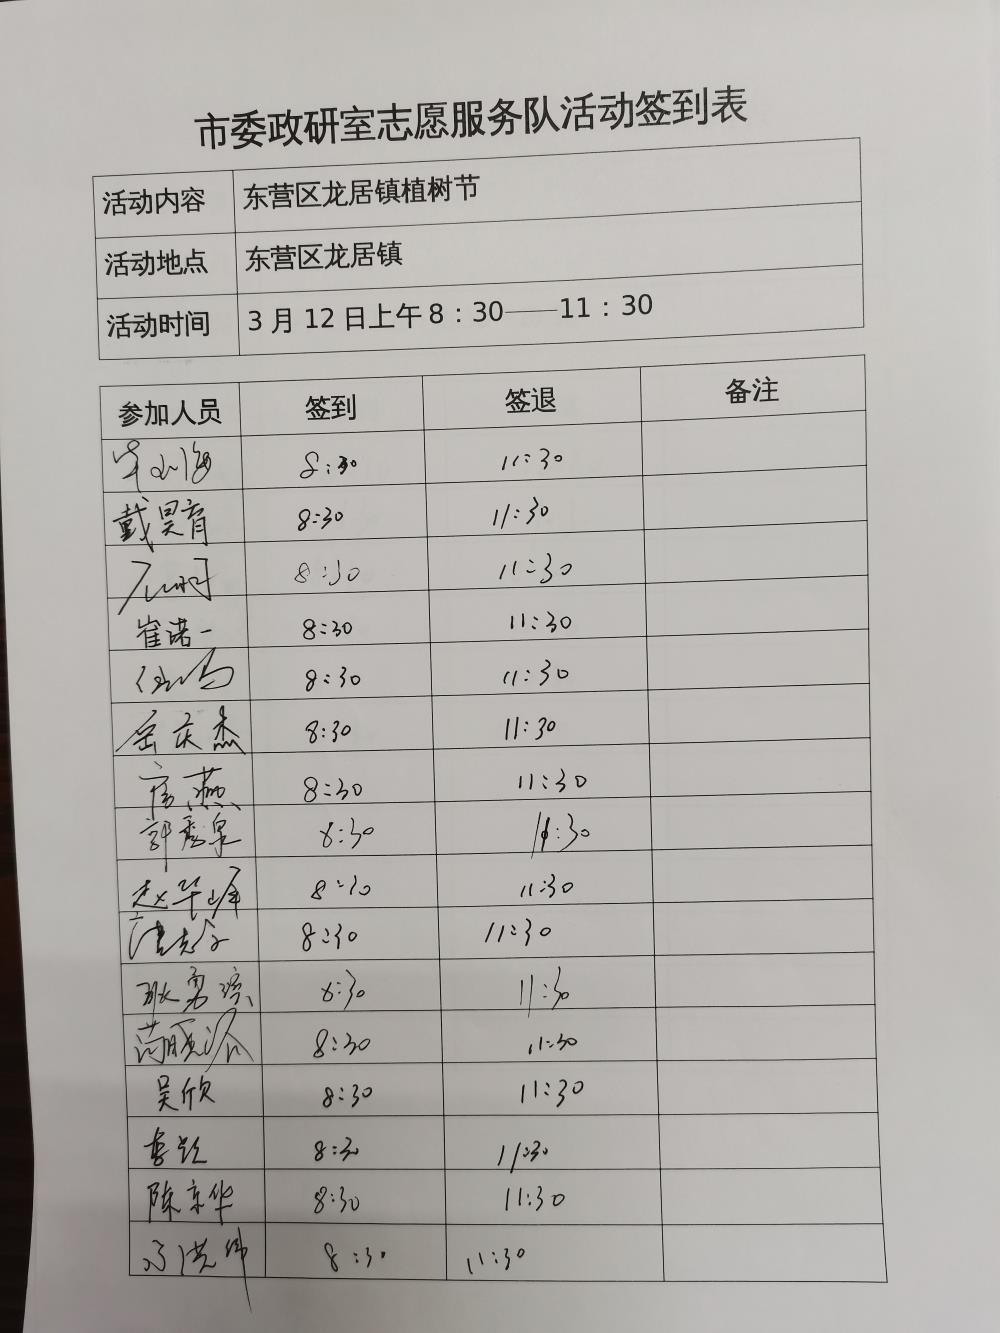 市委政研室志愿服务队活动签到表
活动内容 东营区龙居镇植树节
活动地点 东营区龙居镇
活动时间 3月12日上午8：30——11：30
参加人员 签到 签退 备注
8:30 11:30
戴昊育 8:30 11:30
8:30 11:30
崔诺一 8:30 11:30
8:30 11:30
岳庆杰 8:30 11:30
8:30 11:30
郭秀泉 8:30 11:30
赵华峰 8:30 11:30
8:30 11:30
8:30 11:30
8:30 11:30
吴欣 8:30 11:30
8:30 11:30
陈京华 8:30 11:30
8:30 11:30